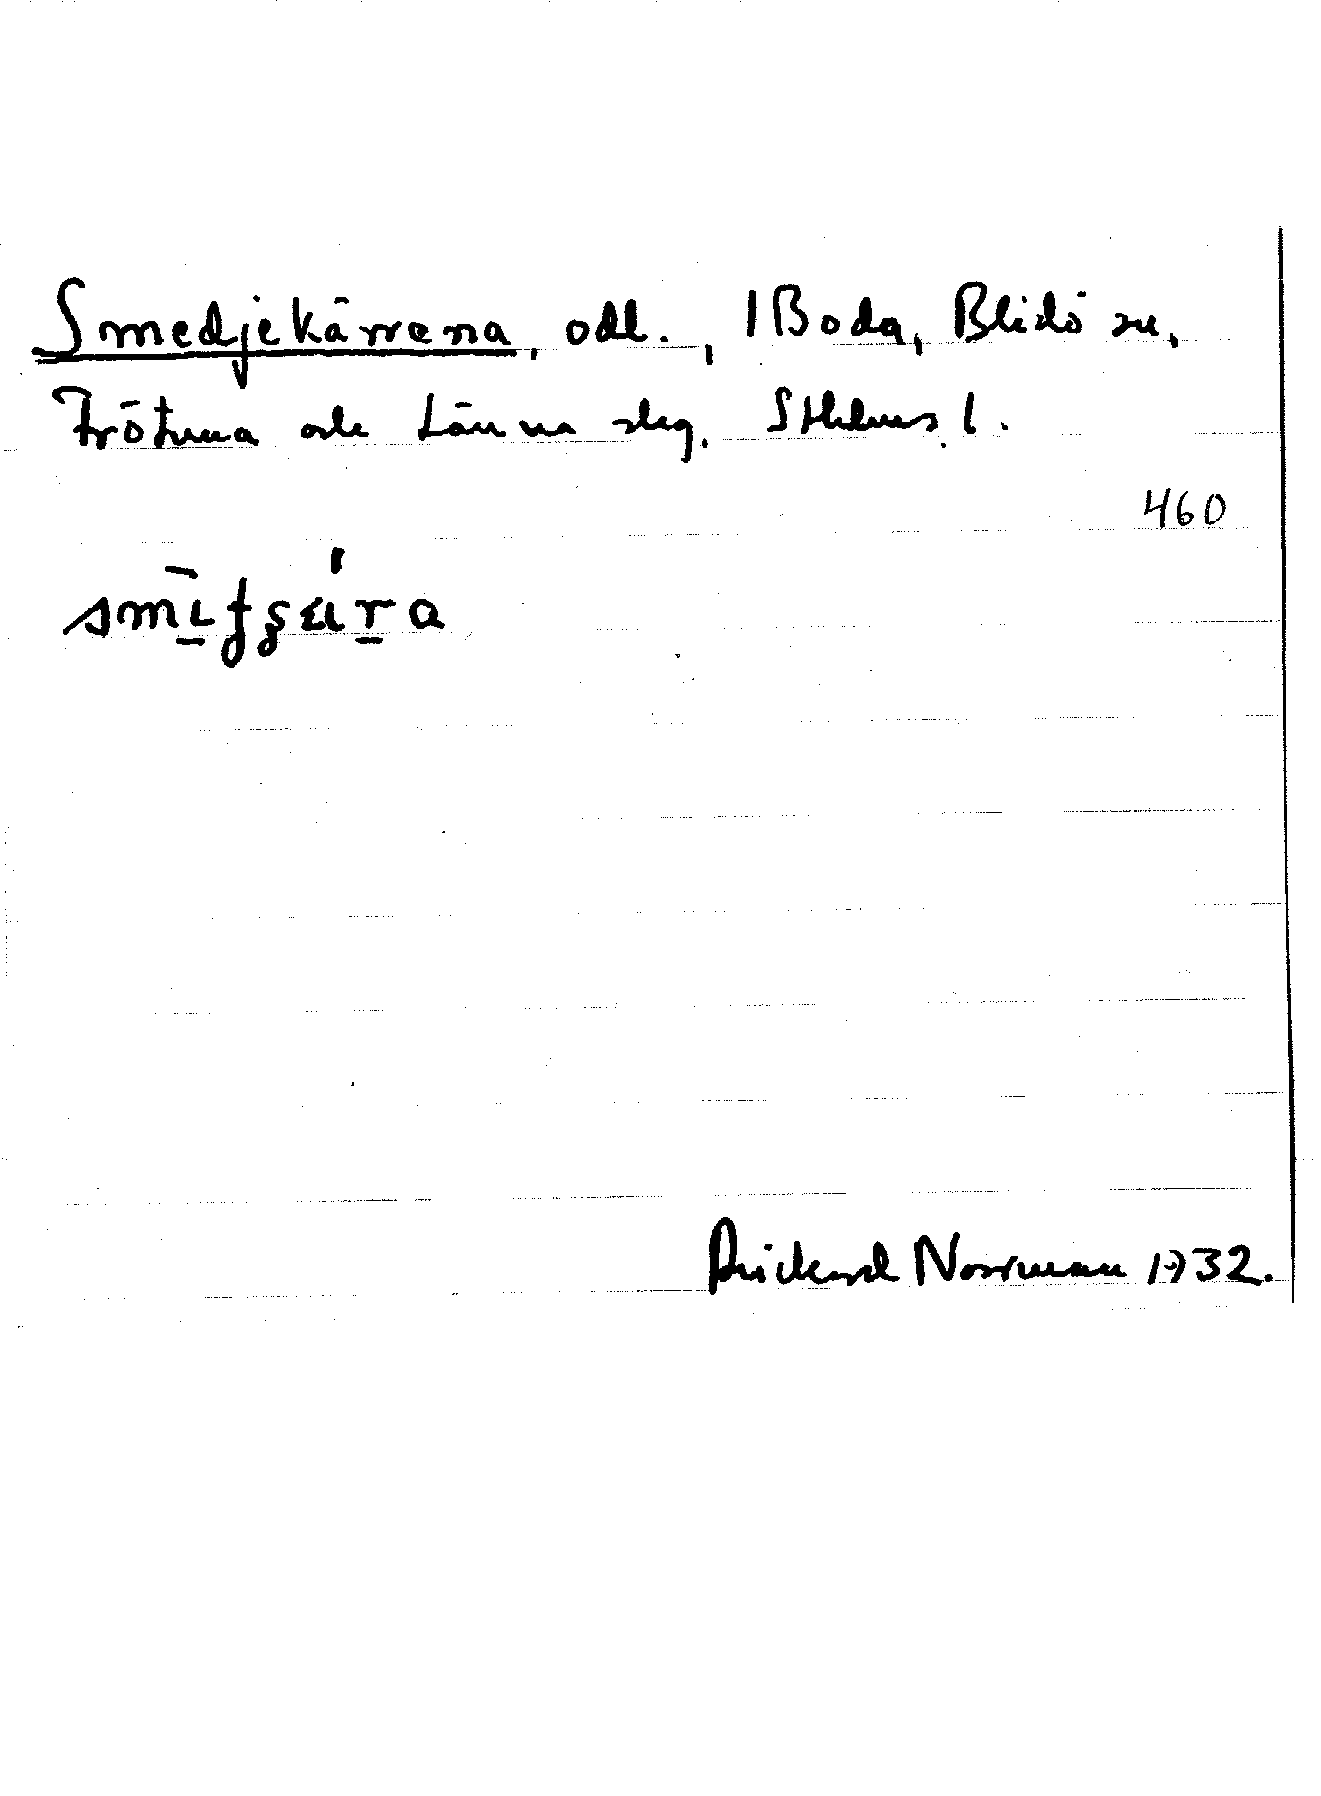 Smedjekärrena, odl., 1 Boda, Blidö sn,
Frötuna och Länna skg. Sthlms l.
460
Rickard Norrman 1932.